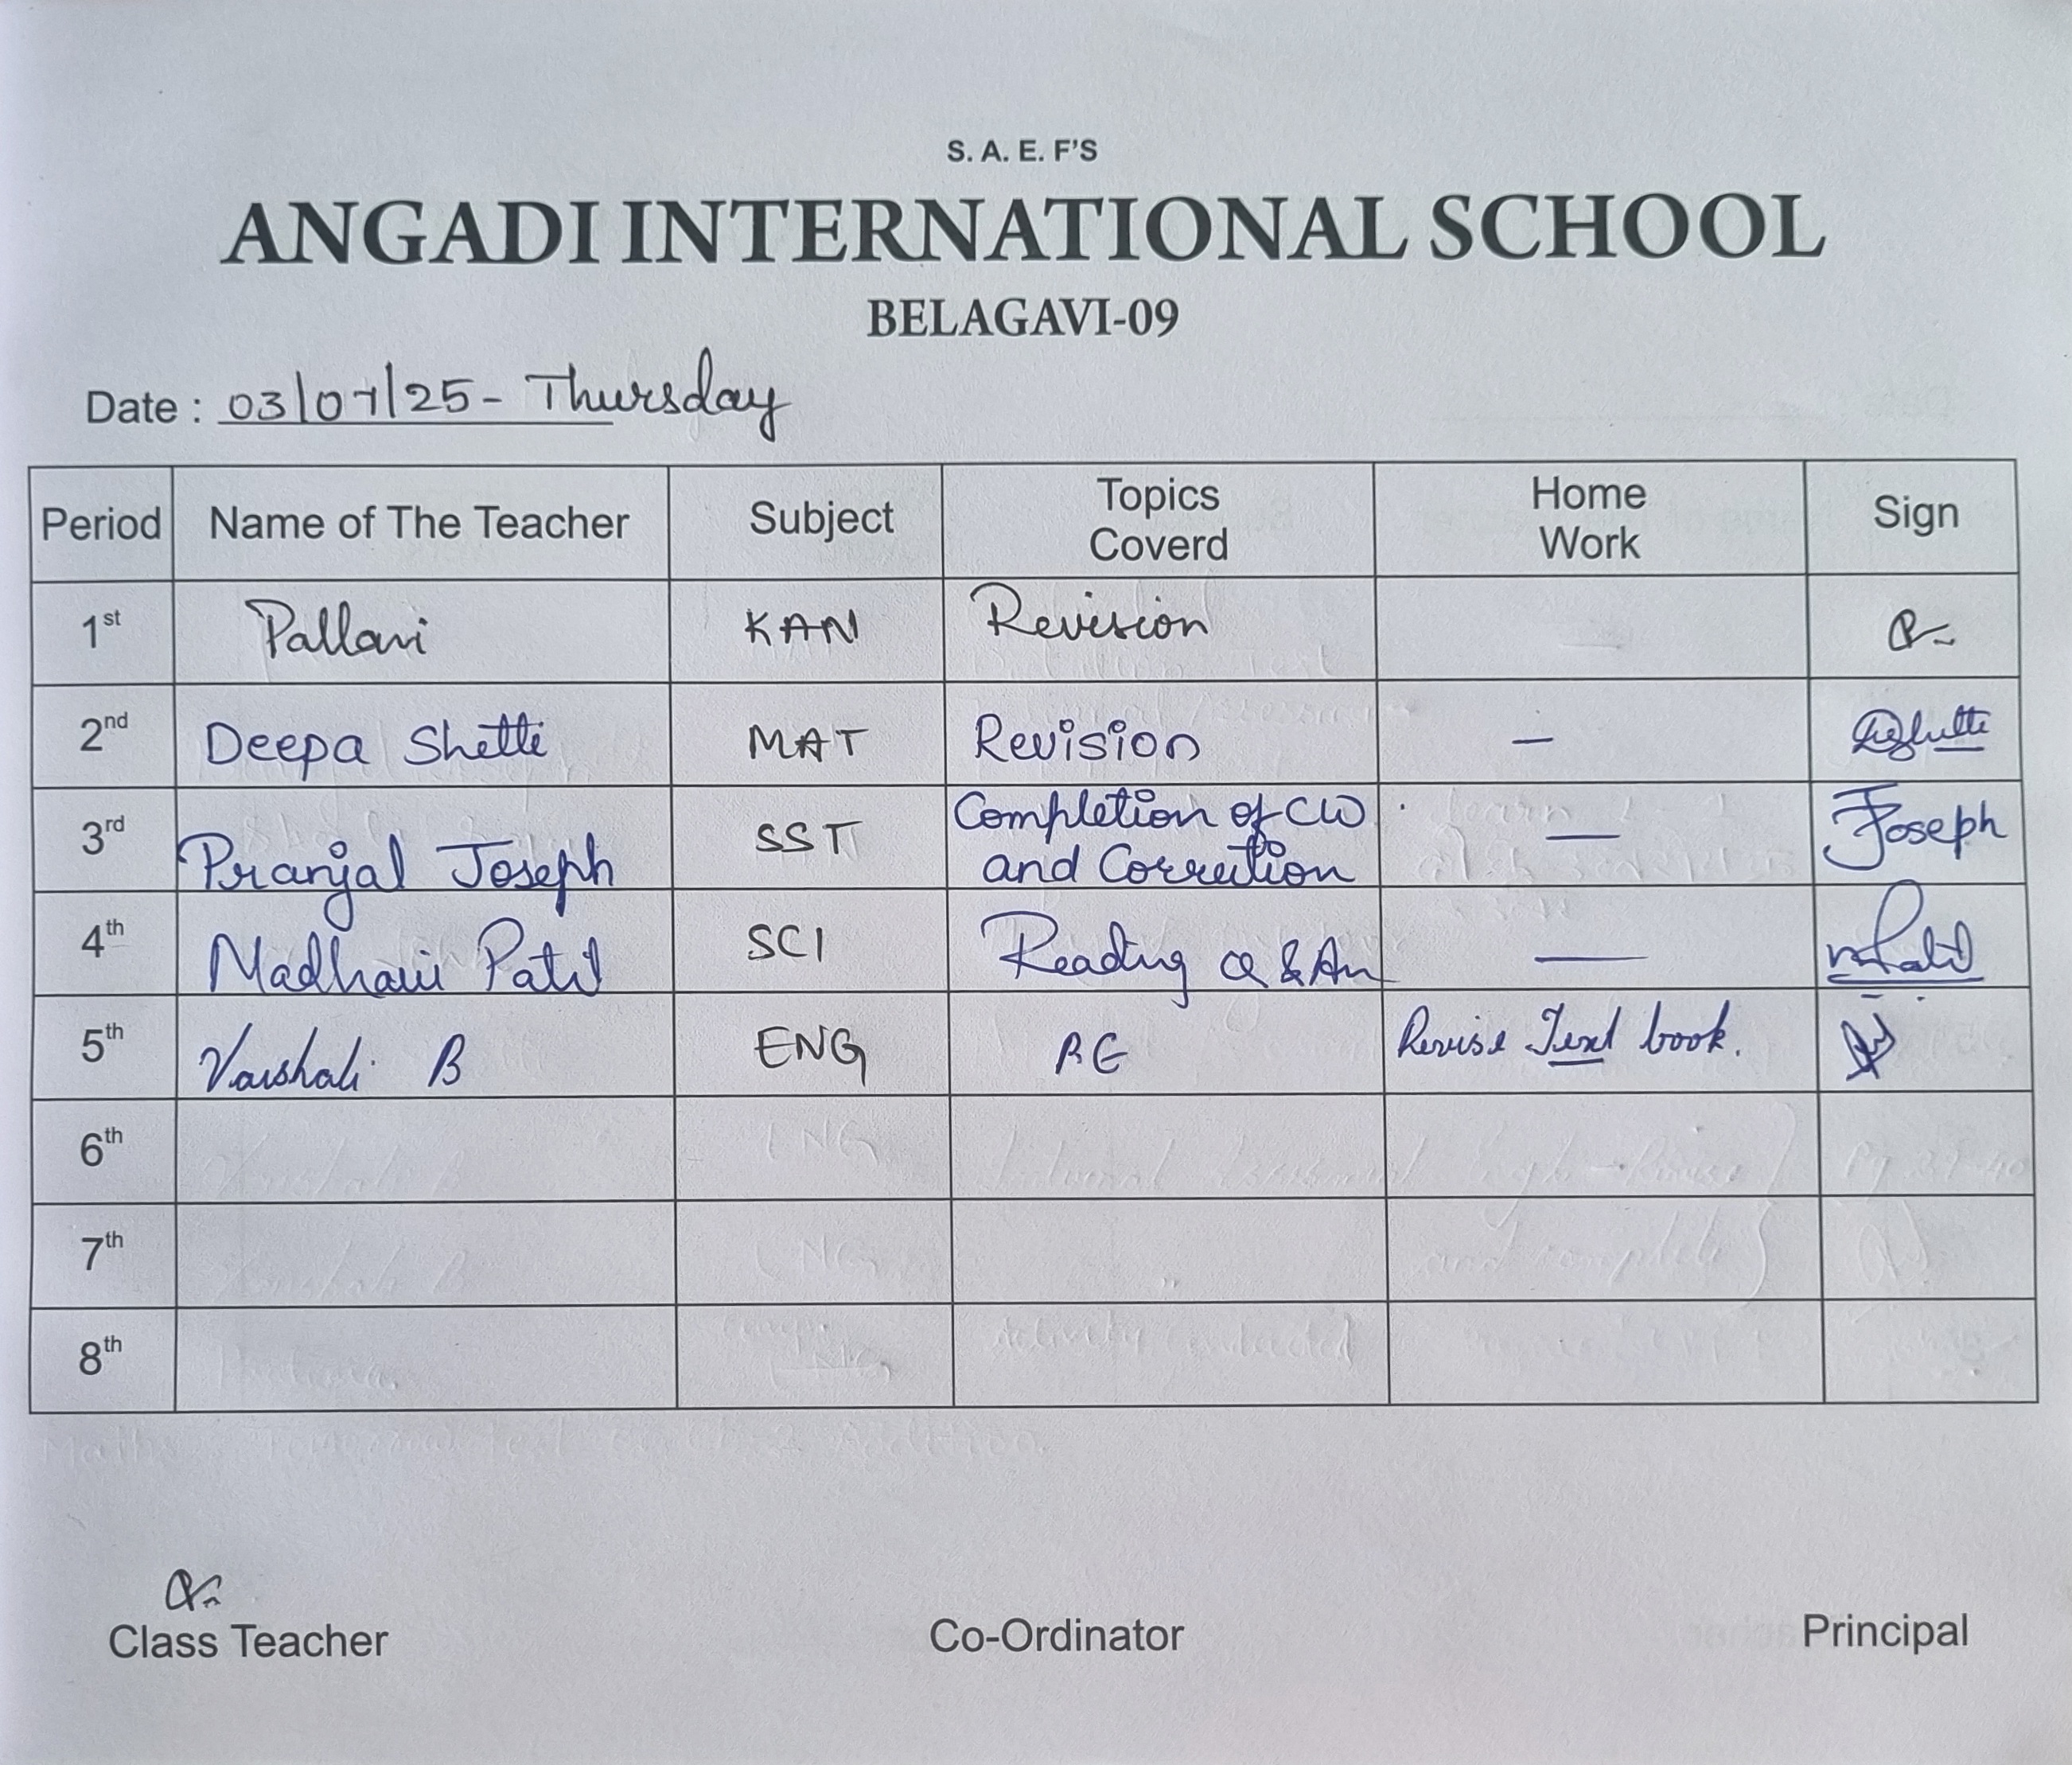 S. A. E. F'S
ANGADI INTERNATIONAL SCHOOL
BELAGAVI-09
Date : 03/07/25 - Thursday
Period Name of The Teacher Subject Topics Coverd Home Work Sign
1st Pallavi KAN Revision —
2nd Deepa Shetti MAT Revision —
3rd Pranjal Joseph SST Completion of CW and Correction — Joseph
4th Madhavi Patil SCI Reading Q & An — mPatil
5th Vaishali B ENG Revise Text book.
6th
7th
8th
Class Teacher Co-Ordinator Principal